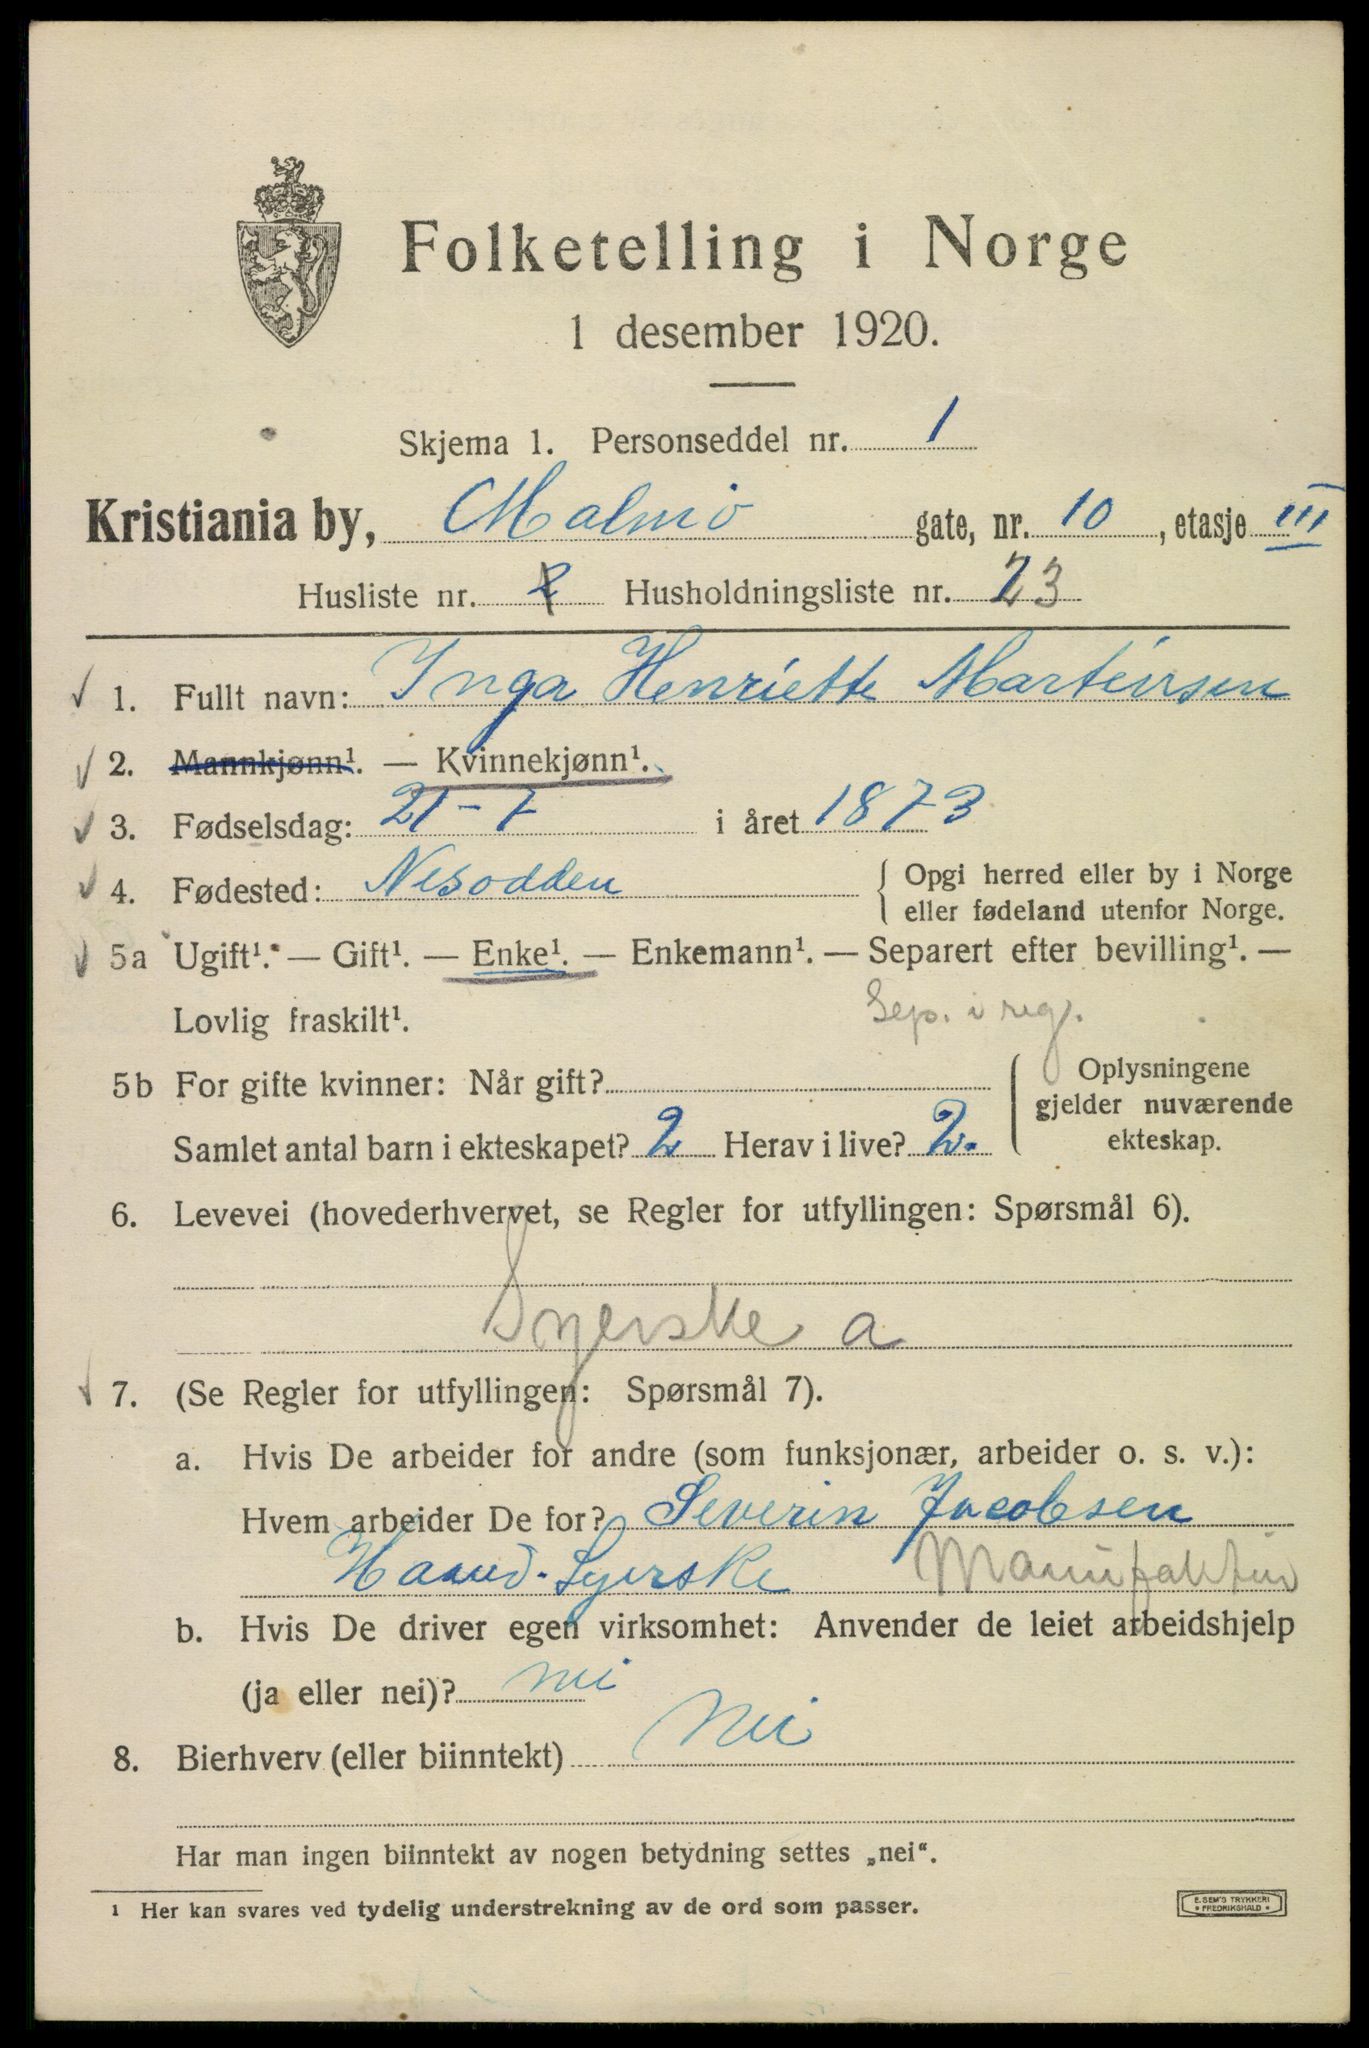 Folketelling i Norge
1 desember 1920.
Skjema 1. Personseddel nr. 1
Kristiania by, Malmö gate, nr. 10, etasje III
Husliste nr. 2 Husholdningsliste nr. 23
1. Fullt navn: Inga Henriette Martinsen
2. Mannkjønn¹. — Kvinnekjønn¹.
3. Fødselsdag: 21-7 i året 1873
4. Fødested: Nesodden { Opgi herred eller by i Norge
eller fødeland utenfor Norge.
5a Ugift¹. — Gift¹. — Enke¹. — Enkemann¹. — Separert efter bevilling¹. —
Lovlig fraskilt¹. Sep. i reg.
5b For gifte kvinner: Når gift? { Oplysningene
gjelder nuværende
Samlet antal barn i ekteskapet? 2 Herav i live? 2.
ekteskap.
6. Levevei (hovederhvervet, se Regler for utfyllingen: Spørsmål 6).
Syerske a
7. (Se Regler for utfyllingen: Spørsmål 7).
a. Hvis De arbeider for andre (som funksjonær, arbeider o. s. v.):
Hvem arbeider De for? Severin Jacobsen
Haand-Syerske Manufaktur
b. Hvis De driver egen virksomhet: Anvender de leiet arbeidshjelp
(ja eller nei)? nei
8. Bierhverv (eller biinntekt) Nei
Har man ingen biinntekt av nogen betydning settes „nei“.
¹ Her kan svares ved tydelig understrekning av de ord som passer.
E. SEM'S TRYKKERI
* FREDRIKSHALD *